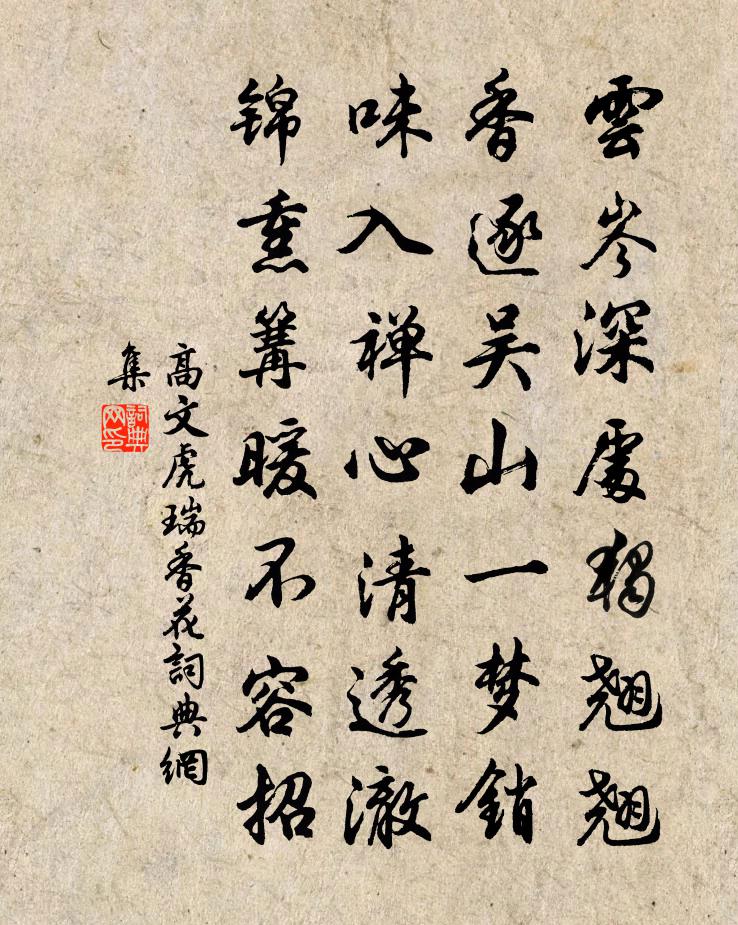 雲岑深處獨翹翹
香逐吴山一梦銷
味入禅心清透澈
锦熏篝暖不容招
高文虎瑞香花詞典網
集
詞典
网印